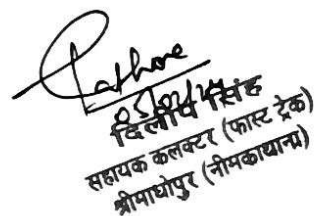 Rathore
दिलीप सिंह
सहायक कलक्टर (फास्ट ट्रेक)
श्रीमाधोपुर (नीमकाथाना)